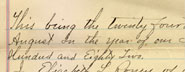 This being the twenty four
August In the year of our
Hundred and Eighty Two.